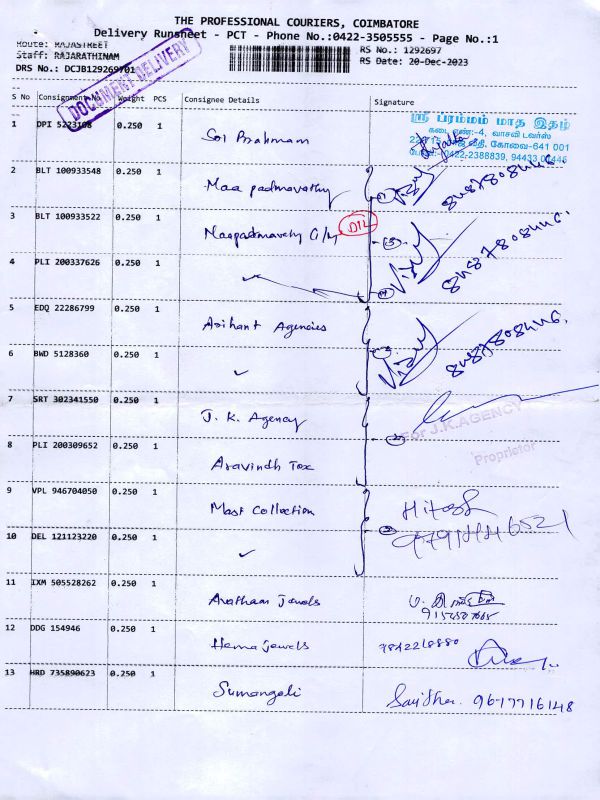 THE PROFESSIONAL COURIERS, COIMBATORE
Delivery Runsheet - PCT - Phone No.:0422-3505555 - Page No.:1
Route: RAJASTREET
RS No.: 1292697
Staff: RAJARATHINAM
RS Date: 20-Dec-2023
DRS No.: DCJB129269701
DOCUMENT DELIVERY
S No Consignment No Weight PCS Consignee Details Signature
ஸ்ரீ பரம்மம் மாத இதழ்
கடை எண்:-4, வாசவி டவர்ஸ்
வீதி, கோவை-641 001
0422-2388839, 94433
1 DPI 5223108 0.250 1 Sri Brahmam
2 BLT 100933548 0.250 1 Maa padmavathy 8487808446
3 BLT 100933522 0.250 1 Maapadmavathy DTL 8487808446.
4 PLI 200337626 0.250 1 ✓
5 EDQ 22286799 0.250 1 Arihant Agencies 8487808446.
6 BWD 5128360 0.250 1 ✓
7 SRT 302341550 0.250 1 J. K. Agency
For J.K.AGENCY
Proprietor
8 PLI 200309652 0.250 1 Aravindh Tex
9 VPL 946704050 0.250 1 Mast Collection Hitesh
10 DEL 121123220 0.250 1 ✓
11 IXM 505528262 0.250 1 Aratham jewels
12 DDG 154946 0.250 1 Hema jewels 7842218880
13 HRD 735890623 0.250 1 Sumangali Savitha. 9677716148